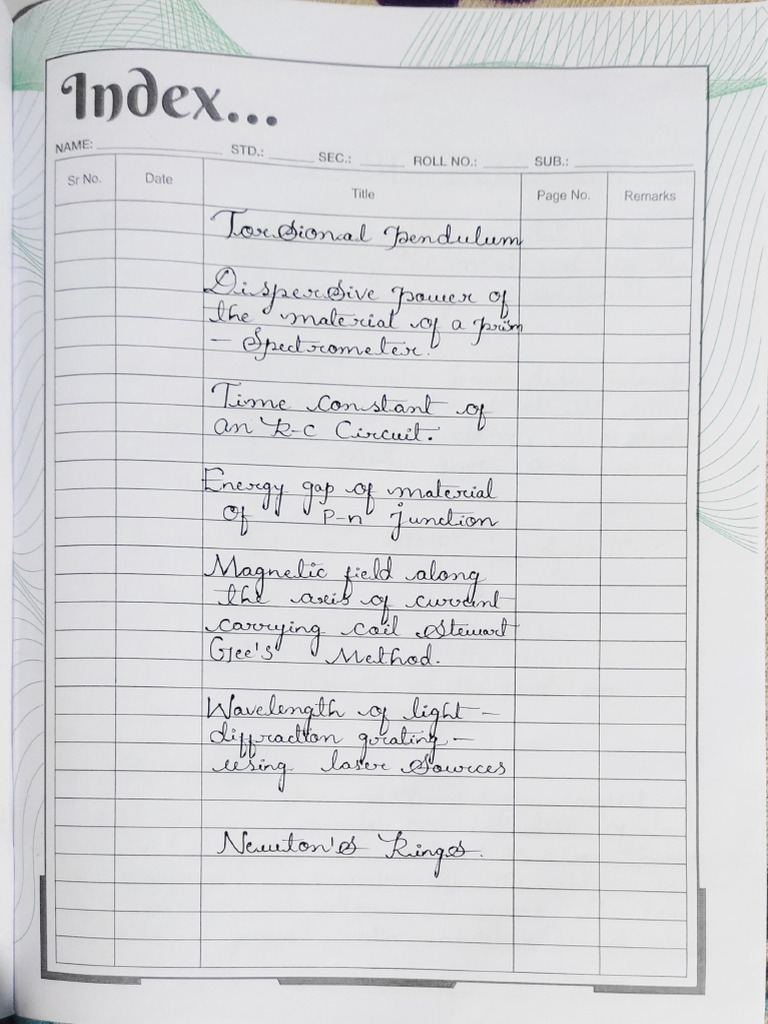 Index...
NAME: STD.: SEC.: ROLL NO.: SUB.:
Sr No. Date Title Page No. Remarks
Torsional Pendulum
Dispersive power of
the material of a prism
– Spectrometer.
Time constant of
an R-C Circuit.
Energy gap of material
of P-n junction
Magnetic field along
the axis of current
carrying coil Stewart
Gee's Method.
Wavelength of light –
diffraction grating –
using laser Sources
Newton's Rings.